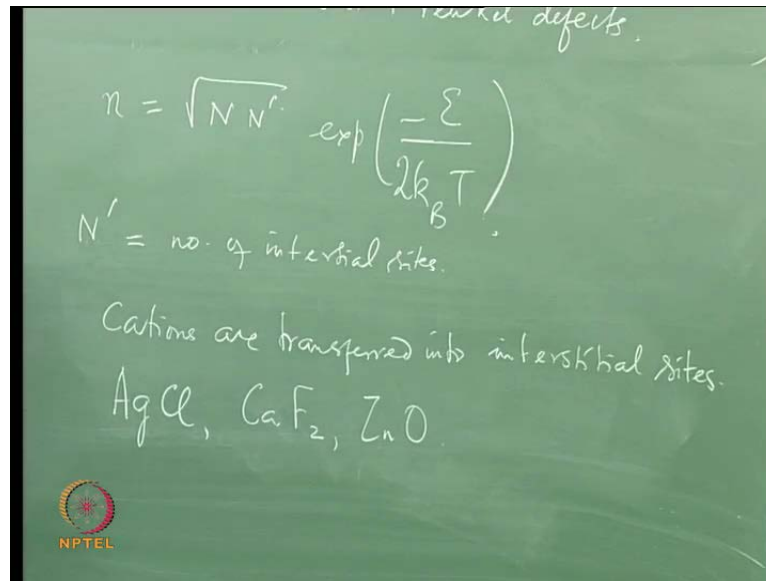 defects.
n = √(N N') exp(-ε / 2k_B T).
N' = no. of intersial sites.
Cations are transferred into interstitial sites.
AgCl, CaF₂, ZnO.
NPTEL